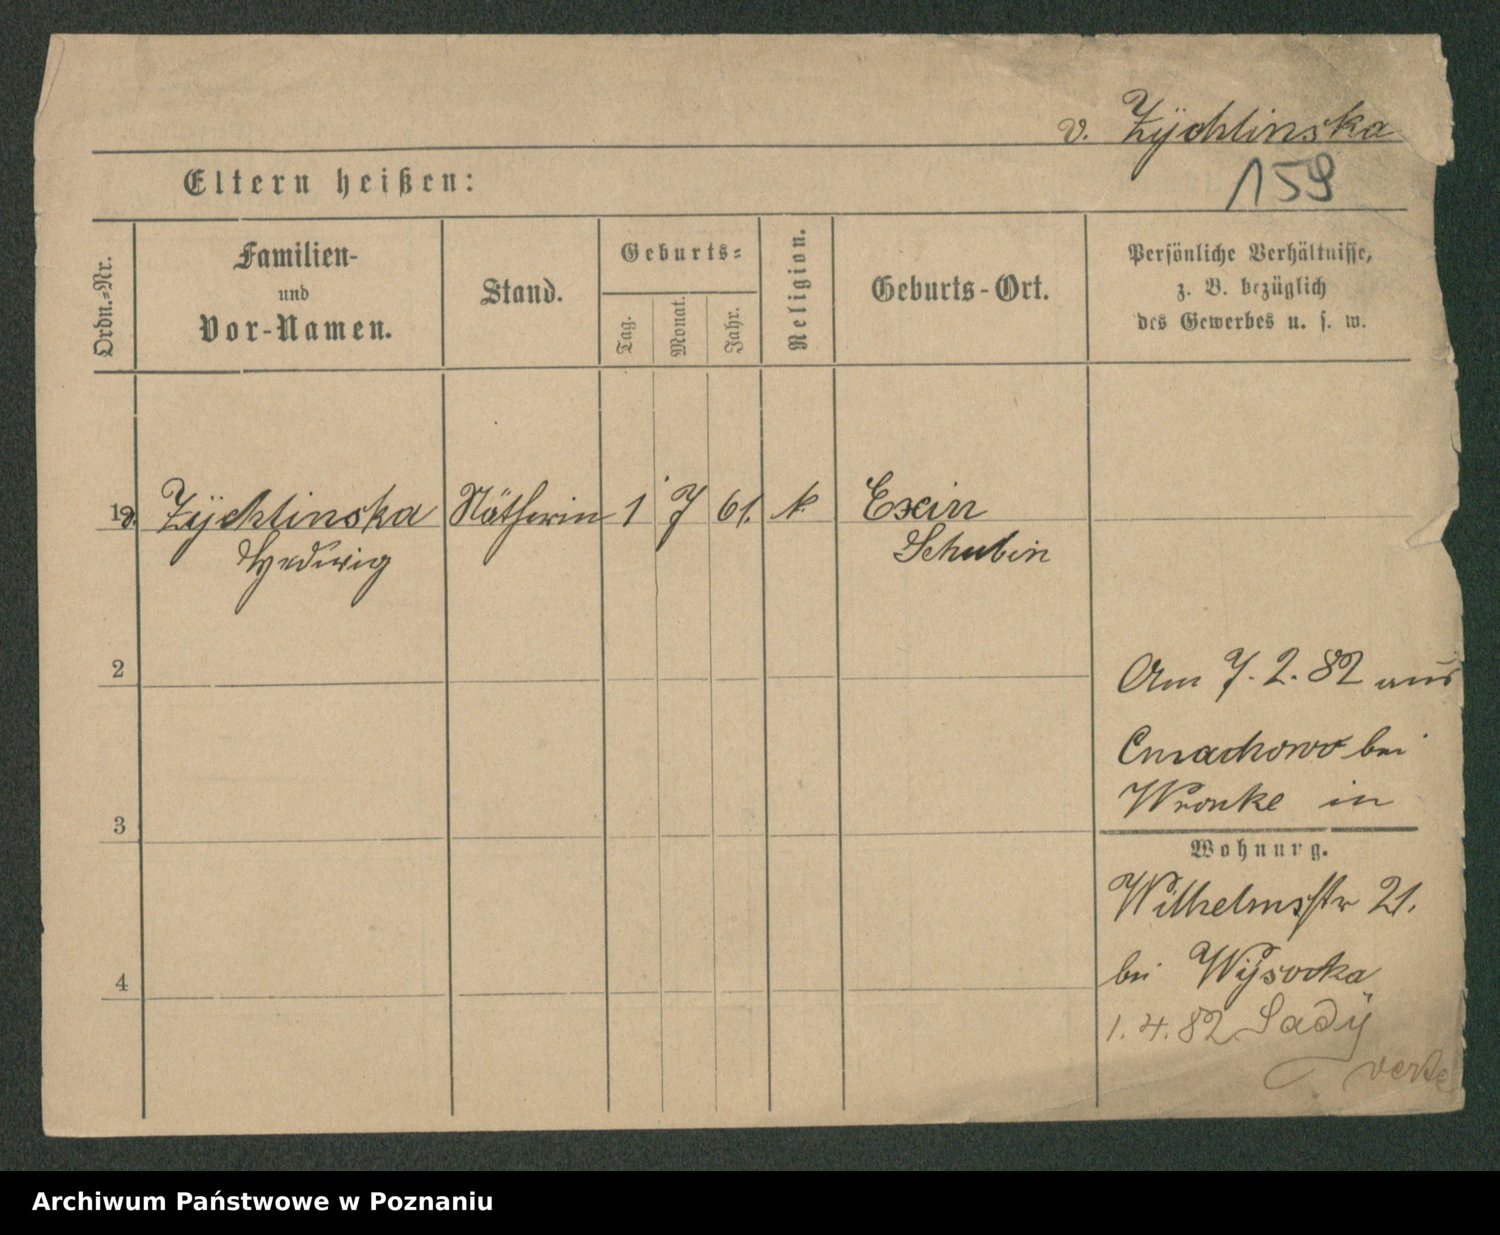 v. Zÿchlinska
159
Eltern heißen:
Ordn.=Nr.
Familien-
und
Vor-Namen.
Stand.
Geburts=
Tag.
Monat.
Jahr.
Religion.
Geburts-Ort.
Persönliche Verhältnisse,
z. B. bezüglich
des Gewerbes u. s. w.
1 v. Zÿchlinska Nätherin 1 7 61. k. Exin
Hedwig Schubin
2
Am 7. 2. 82 aus
Cmachowo bei
Wronke in
3
Wohnung.
Wilhelmsstr 21.
bei Wÿsocka
4
1. 4. 82 Sadÿ
verte
Archiwum Państwowe w Poznaniu